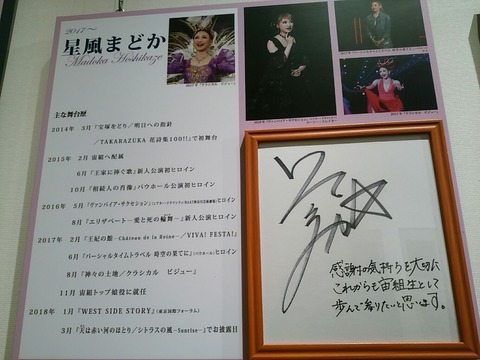 2017～
星風まどか
Madoka Hoshikaze
主な舞台歴
2014年 3月『宝塚をどり／明日への指針
／TAKARAZUKA 花詩集100!!』で初舞台
2015年 2月 宙組へ配属
6月『王家に捧ぐ歌』新人公演初ヒロイン
10月『相続人の肖像』バウホール公演初ヒロイン
2016年 5月『ヴァンパイア・サクセション』
ヒロイン
8月『エリザベート－愛と死の輪舞－』新人公演ヒロイン
2017年 2月『王妃の館－Château de la Reine－／VIVA! FESTA!』
6月『パーシャルタイムトラベル 時空の果てに』(バウホール)ヒロイン
8月『神々の土地／クラシカル ビジュー』
11月 宙組トップ娘役に就任
2018年 1月『WEST SIDE STORY』(東京国際フォーラム)
3月『天は赤い河のほとり／シトラスの風－Sunrise－』でお披露目
2017年『クラシカル ビジュー』
2017年『クラシカル ビジュー』
感謝の気持ちを大切に
これからも宙組生として
歩んで参りたいと思います。